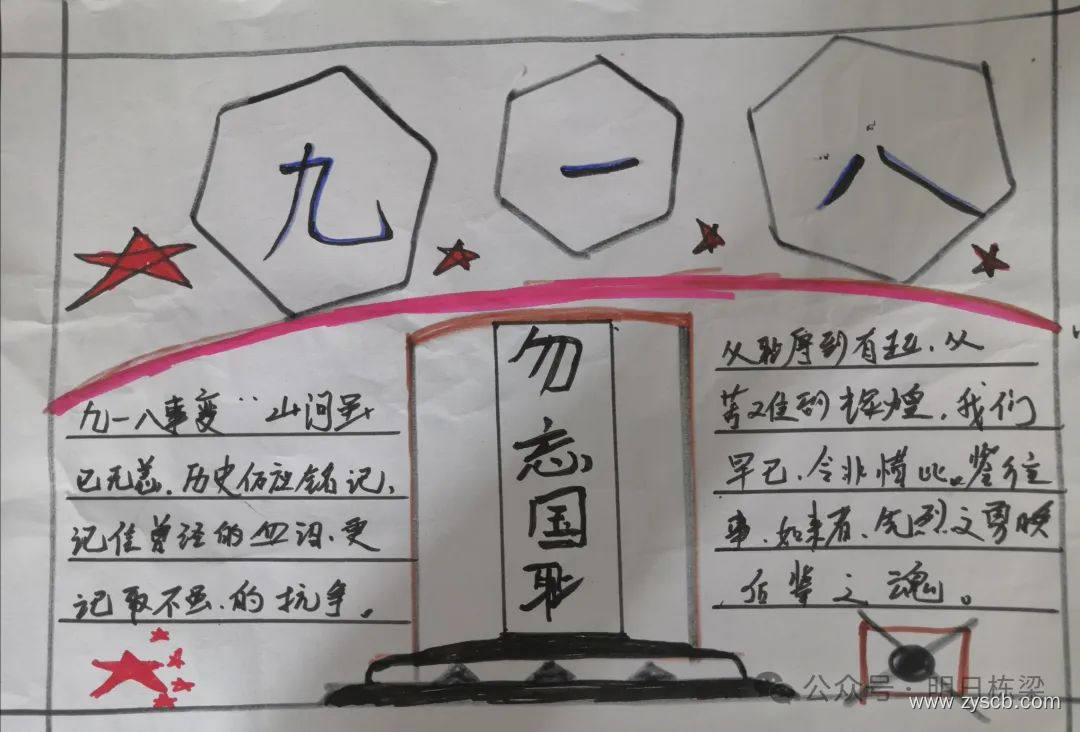 九一八
勿忘国耻
九一八事变 山河虽
已无恙.历史仍应铭记,
记住曾经的血泪,更
记取不屈.的抗争。
从耻辱到有起、从
苦难到辉煌,我们
早已、今非惜比。鉴往
事.如来者、先烈之勇唤
后辈之魂。
公众号·明日栋梁
www.zyscb.com